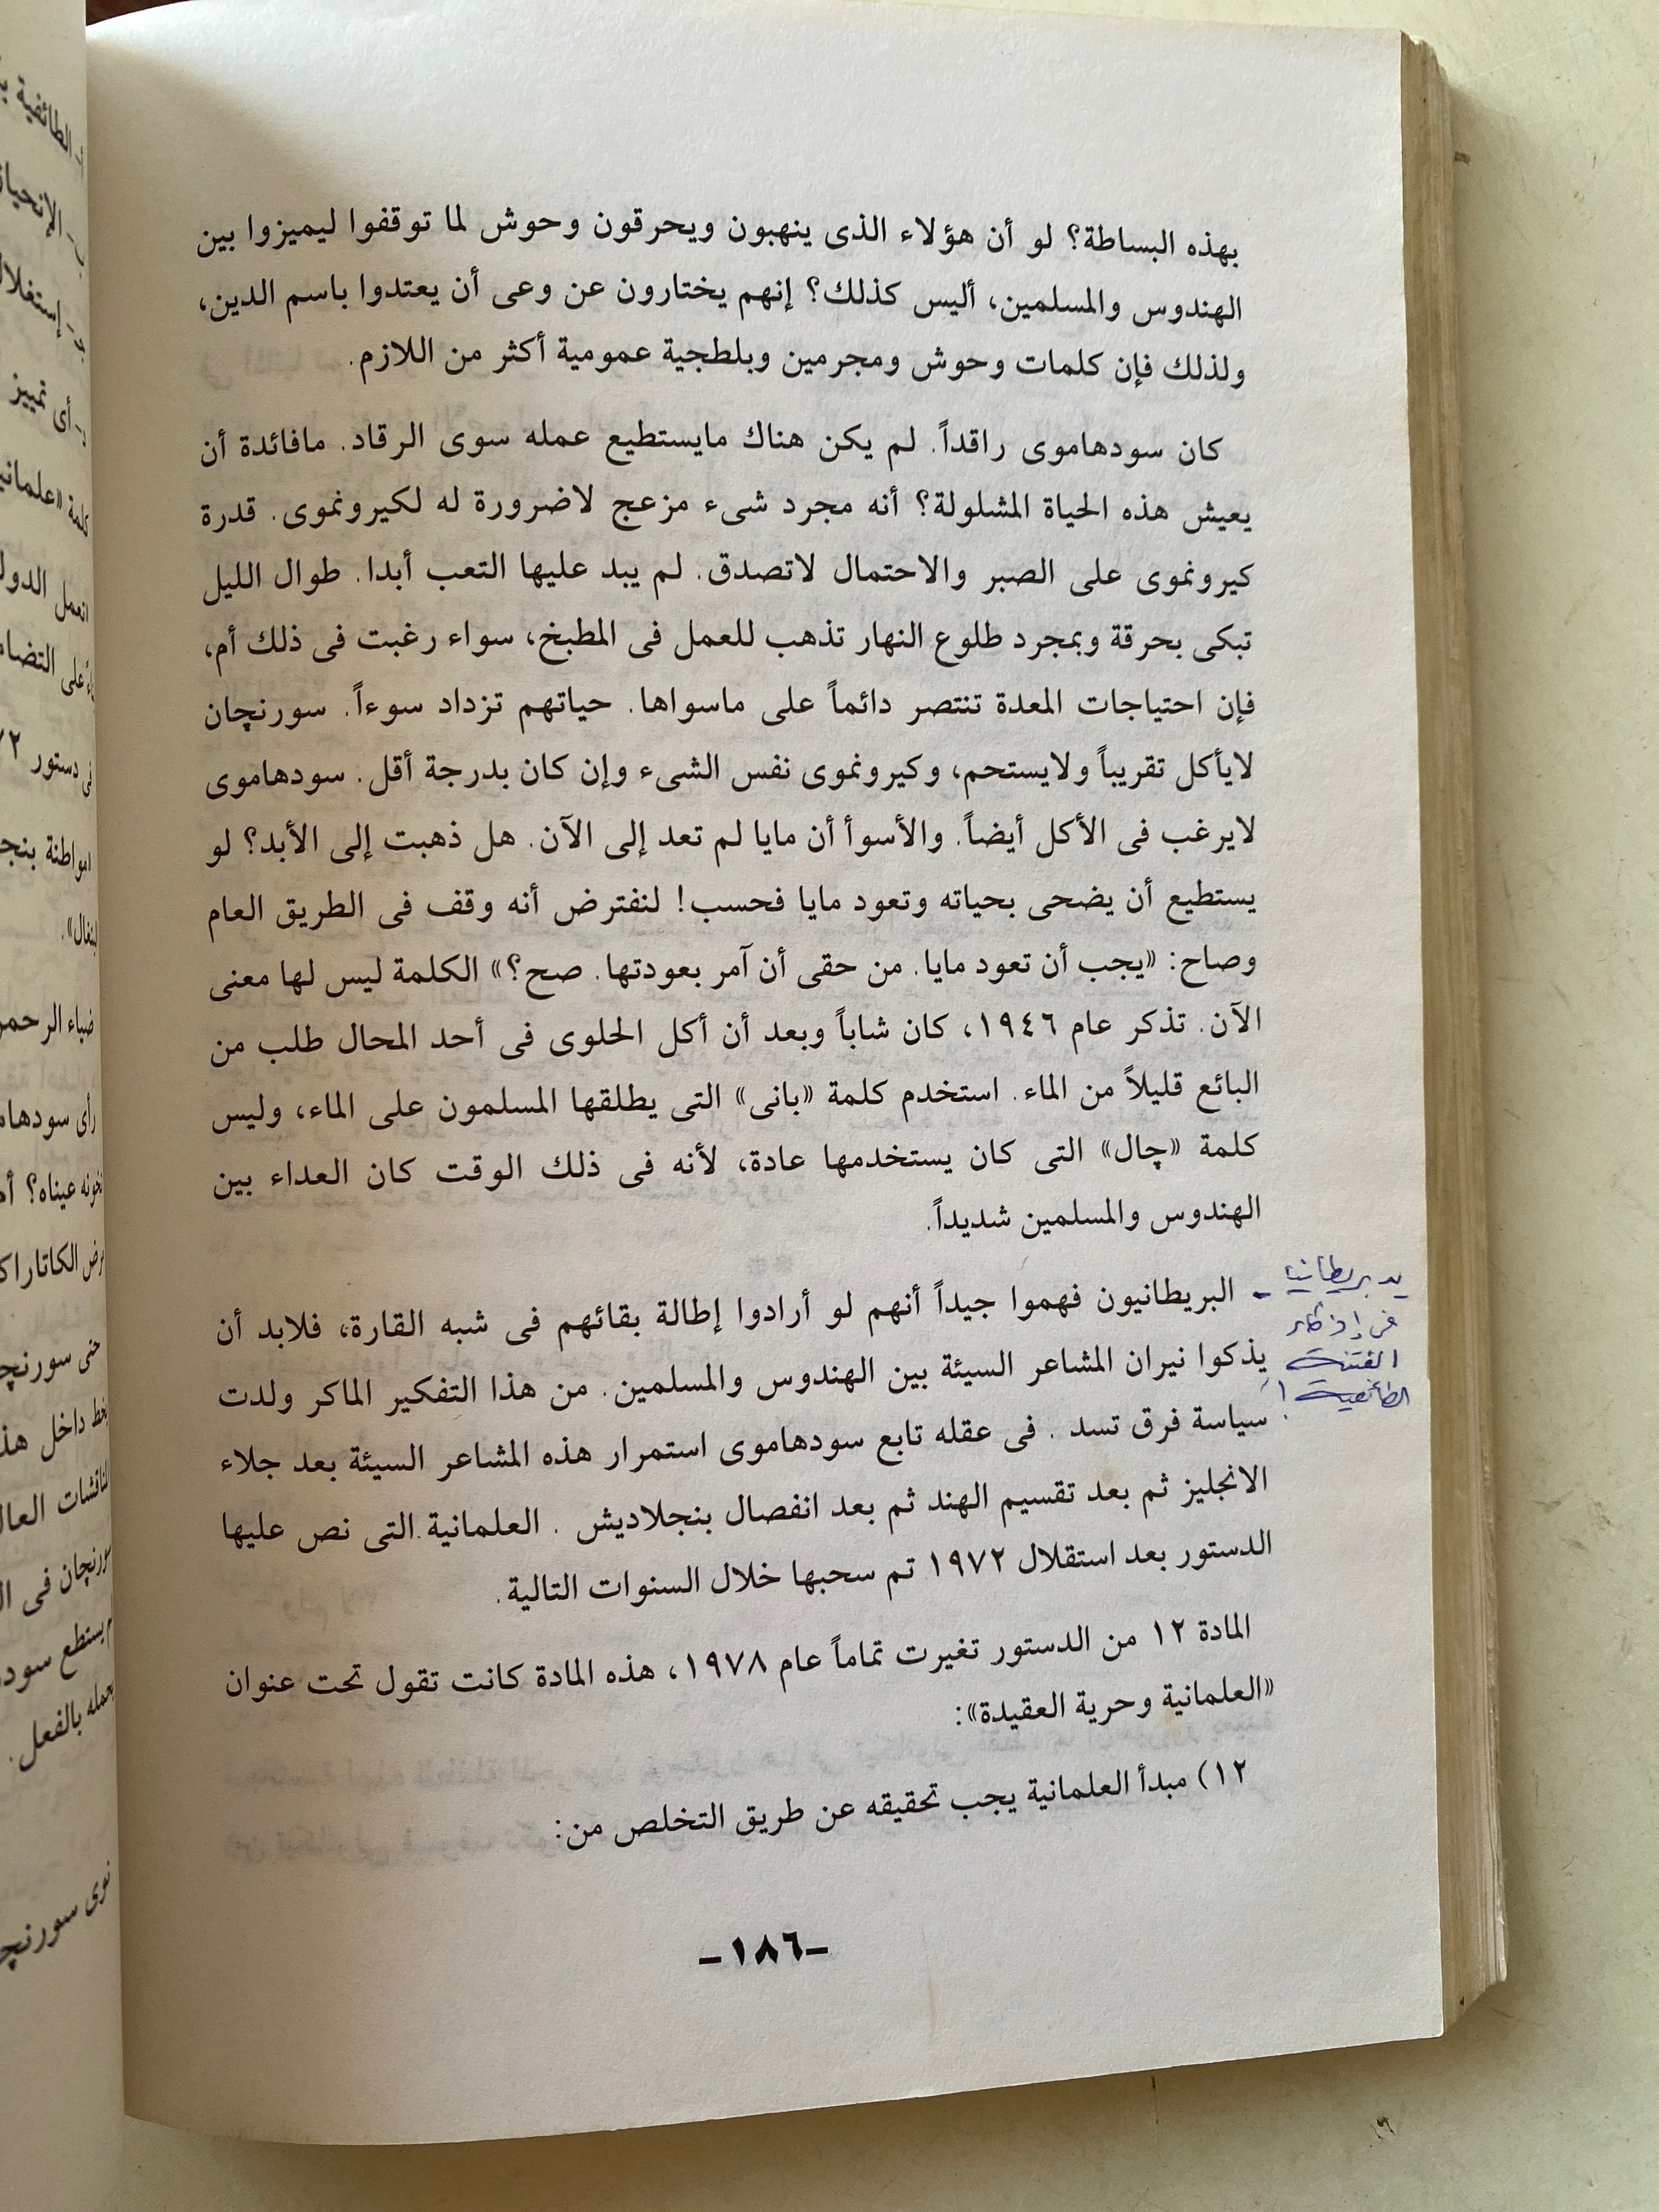 بهذه البساطة؟ لو أن هؤلاء الذى ينهبون ويحرقون وحوش لما توقفوا ليميزوا بين
الهندوس والمسلمين، أليس كذلك؟ إنهم يختارون عن وعى أن يعتدوا باسم الدين،
ولذلك فإن كلمات وحوش ومجرمين وبلطجية عمومية أكثر من اللازم.
كان سودهاموى راقداً. لم يكن هناك مايستطيع عمله سوى الرقاد. مافائدة أن
يعيش هذه الحياة المشلولة؟ أنه مجرد شىء مزعج لاضرورة له لكيرونموى. قدرة
كيرونموى على الصبر والاحتمال لاتصدق. لم يبد عليها التعب أبدا. طوال الليل
تبكى بحرقة وبمجرد طلوع النهار تذهب للعمل فى المطبخ، سواء رغبت فى ذلك أم،
فإن احتياجات المعدة تنتصر دائماً على ماسواها. حياتهم تزداد سوءاً. سورنچان
لايأكل تقريباً ولايستحم، وكيرونموى نفس الشىء وإن كان بدرجة أقل. سودهاموى
لايرغب فى الأكل أيضاً. والأسوأ أن مايا لم تعد إلى الآن. هل ذهبت إلى الأبد؟ لو
يستطيع أن يضحى بحياته وتعود مايا فحسب! لنفترض أنه وقف فى الطريق العام
وصاح: «يجب أن تعود مايا. من حقى أن آمر بعودتها. صح؟» الكلمة ليس لها معنى
الآن. تذكر عام ١٩٤٦، كان شاباً وبعد أن أكل الحلوى فى أحد المحال طلب من
البائع قليلاً من الماء. استخدم كلمة «بانى» التى يطلقها المسلمون على الماء، وليس
كلمة «چال» التى كان يستخدمها عادة، لأنه فى ذلك الوقت كان العداء بين
الهندوس والمسلمين شديداً.
البريطانيون فهموا جيداً أنهم لو أرادوا إطالة بقائهم فى شبه القارة، فلابد أن
يذكوا نيران المشاعر السيئة بين الهندوس والمسلمين. من هذا التفكير الماكر ولدت
سياسة فرق تسد . فى عقله تابع سودهاموى استمرار هذه المشاعر السيئة بعد جلاء
الانجليز ثم بعد تقسيم الهند ثم بعد انفصال بنجلاديش . العلمانية التى نص عليها
الدستور بعد استقلال ١٩٧٢ تم سحبها خلال السنوات التالية.
المادة ١٢ من الدستور تغيرت تماماً عام ١٩٧٨، هذه المادة كانت تقول تحت عنوان
«العلمانية وحرية العقيدة»:
١٢) مبدأ العلمانية يجب تحقيقه عن طريق التخلص من:
-١٨٦-
يد بريطانيا
فى إذكاء
الفتنة
الطائفية!